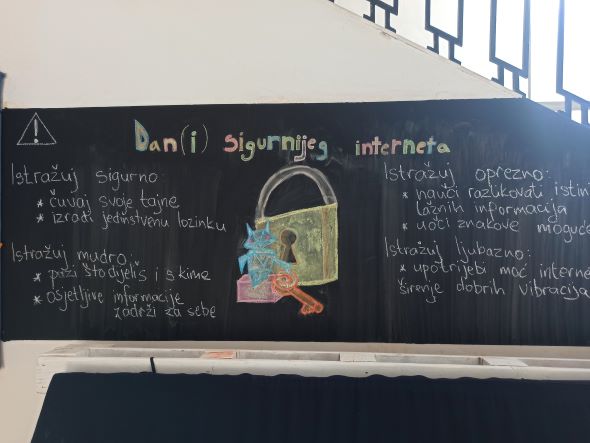 Dan(i) sigurnijeg interneta
Istražuj sigurno:
* čuvaj svoje tajne
* izradi jedinstvenu lozinku
Istražuj mudro:
* pazi što dijeliš i s kime
* osjetljive informacije
zadrži za sebe
Istražuj oprezno:
* nauči razlikovati istin
lažnih informacija
* uoči znakove moguće
Istražuj ljubazno:
* upotrijebi moć interne
širenje dobrih vibracija